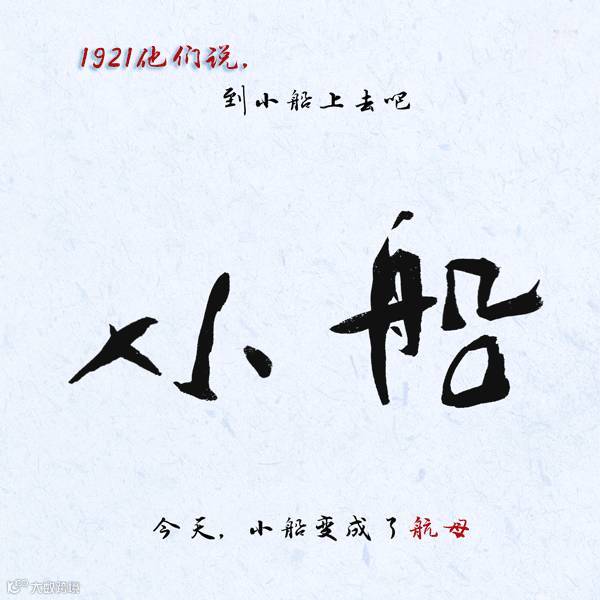 1921他们说,
到小船上去吧
小船
今天,小船变成了航母